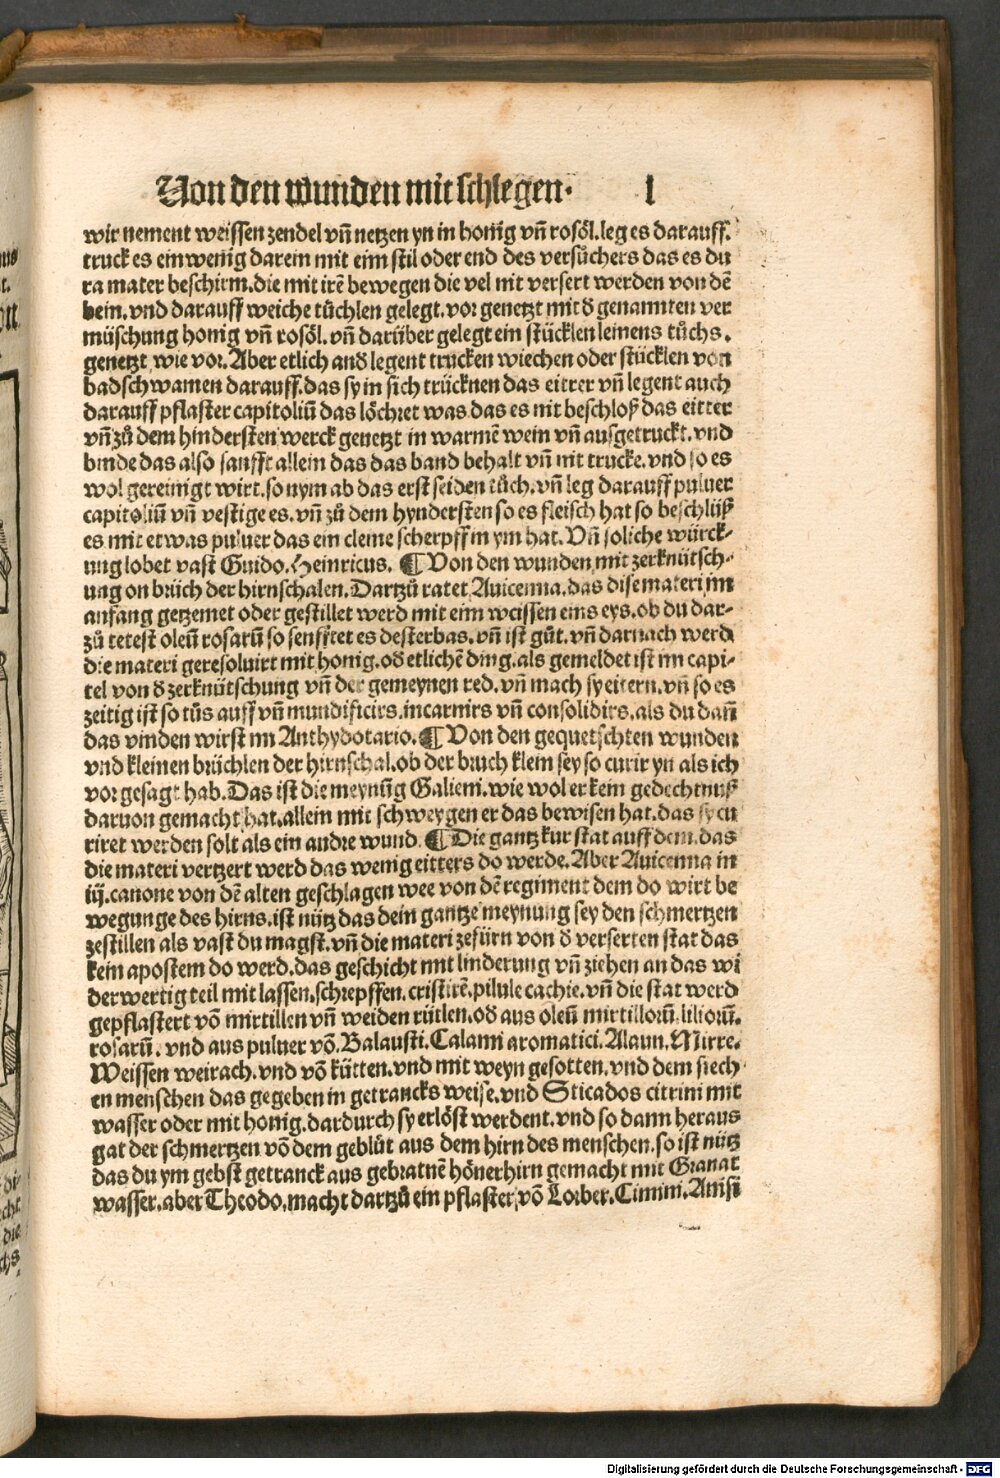 Von den wunden mit schlegen· l
wir nement weissen zendel vn̄ netzen yn in honig vn̄ rosöl. leg es darauff.
truck es ein wenig darein mit eim stil oder end des versůchers das es du
ra mater beschirm. die mit irē bewegen die vel nit versert werden von dē
bein. vnd darauff weiche tüchlen gelegt. vor genetzt mit d̄ genannten ver
müschung honig vn̄ rosöl. vn̄ darüber gelegt ein stücklen leinens tůchs.
genetzt wie vor. Aber etlich and̄ legent trucken wiechen oder stücklen von
badschwamen darauff. das sy in sich trücknen das eitrer vn̄ legent auch
darauff pflaster capitoliū das löchret was das es nit beschloß das eitter
vn̄ zů dem hindersten werck genetzt in warmē wein vn̄ ausgetruckt. vnd
binde das also saufft allein das das band behalt vn̄ nit trucke. vnd so es
wol gereinigt wirt. so nym ab das erst seiden tůch. vn̄ leg darauff puluer
capitoliū vn̄ vestige es. vn̄ zů dem hyndersten so es fleisch hat so beschlüß
es mit etwas puluer das ein cleine scherpff in ym hat. Vn̄ soliche würck-
ung lobet vast Guido. Heinricus. ¶ Von den wunden mit zerknütsch-
ung on brüch der hirnschalen. Dartzů ratet Auicenna. das dise materi im
anfang getzemet oder gestillet werd mit eim weissen eins eys. ob du dar-
zů tetest oleū rosarū so senfftet es desterbas. vn̄ ist gůt. vn̄ darnach werd
die materi geresoluirt mit honig. od̄ etlichē ding. als gemeldet ist im capi-
tel von d̄ zerknütschung vn̄ der gemeynen red. vn̄ mach sy eitern. vn̄ so es
zeitig ist so tůs auff vn̄ mundificirs. incarnirs vn̄ consolidirs. als du dan̄
das vinden wirst im Anthydotario. ¶ Von den gequetschten wunden
vnd kleinen brüchlen der hirnschal. ob der bruch klein sey so curir yn als ich
vor gesagt hab. Das ist die meynūg Galieni. wie wol er kein gedechtnuß
daruon gemacht hat. allein mit schweygen er das bewisen hat. das sy cu
riret werden solt als ein andre wund. ¶ Die gantz kur stat auff dem. das
die materi vertzert werd das wenig eitters do werde. Aber Auicenna in
iij. canone von dē alten geschlagen wee von dē regiment dem do wirt be
wegunge des hirns. ist nütz das dein gantze meynung sey den schmertzen
zestillen als vast du magst. vn̄ die materi zefürn von d̄ verserten stat das
kein apostem do werd. das geschicht mit linderung vn̄ ziehen an das wi
derwertig teil mit lassen. schrepffen. cristirē. pilule cachie. vn̄ die stat werd
gepflastert vō mirtillen vn̄ weiden rütlen. od̄ aus oleū mirtillorū. liliorū.
rosarū. vnd aus puluer vō. Balausti. Calami aromatici. Alaun. Mirre.
Weissen weirach. vnd vō kütten. vnd mit weyn gesotten. vnd dem siech
en menschen das gegeben in getrancks weise. vnd Sticados citrini mit
wasser oder mit honig. dardurch sy erlöst werdent. vnd so dann heraus
gat der schmertzen vō dem geblůt aus dem hirn des menschen. so ist nütz
das du ym gebst getranck aus gebratnē hönerhirn gemacht mit Granat
wasser. aber Theodo. macht dartzů ein pflaster vō Lorber. Cimini. Anisi
Digitalisierung gefördert durch die Deutsche Forschungsgemeinschaft - DFG